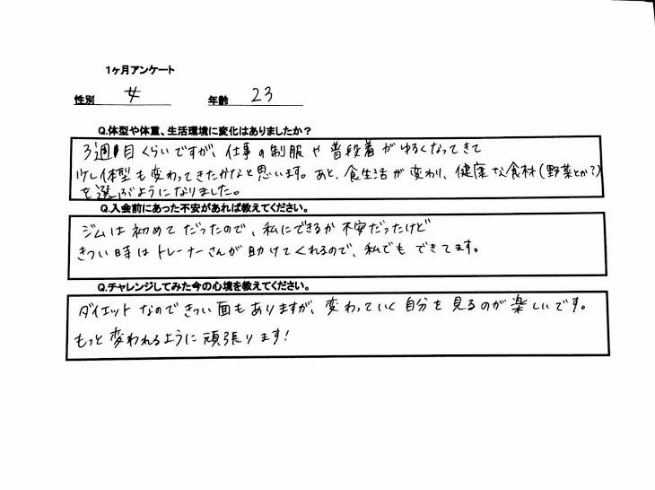 1ヶ月アンケート
性別 女 年齢 23
Q.体型や体重、生活環境に変化はありましたか?
3週目くらいですが、仕事の制服や普段着がゆるくなってきて
少し体型も変わってきたかなと思います。あと、食生活が変わり、健康な食材(野菜とか?)
を選ぶようになりました。
Q.入会前にあった不安があれば教えてください。
ジムは初めてだったので、私にできるか不安だったけど
きつい時はトレーナーさんが助けてくれるので、私でもできてます。
Q.チャレンジしてみた今の心境を教えてください。
ダイエットなのできつい面もありますが、変わっていく自分を見るのが楽しいです。
もっと変われるように頑張ります!